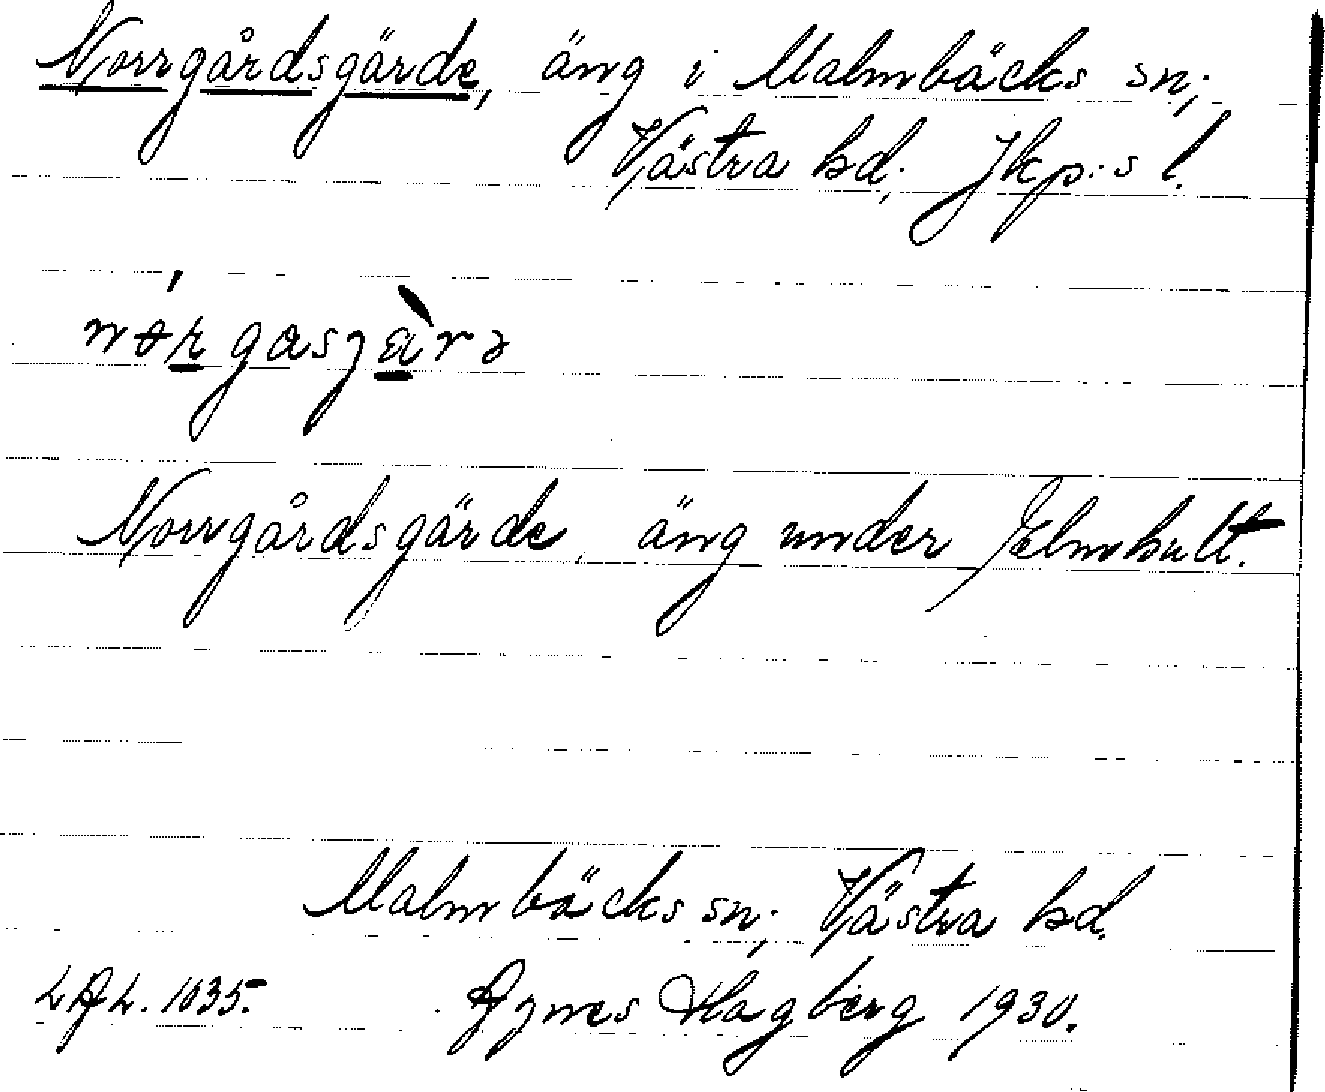 Norrgårdsgärde, äng i Malmbäcks sn;
Västra hd; Jkp:s l.
Norrgårdsgärde, äng under Elmhult.
Malmbäcks sn; Västra hd.
LAL. 1035. Agnes Hagberg 1930.